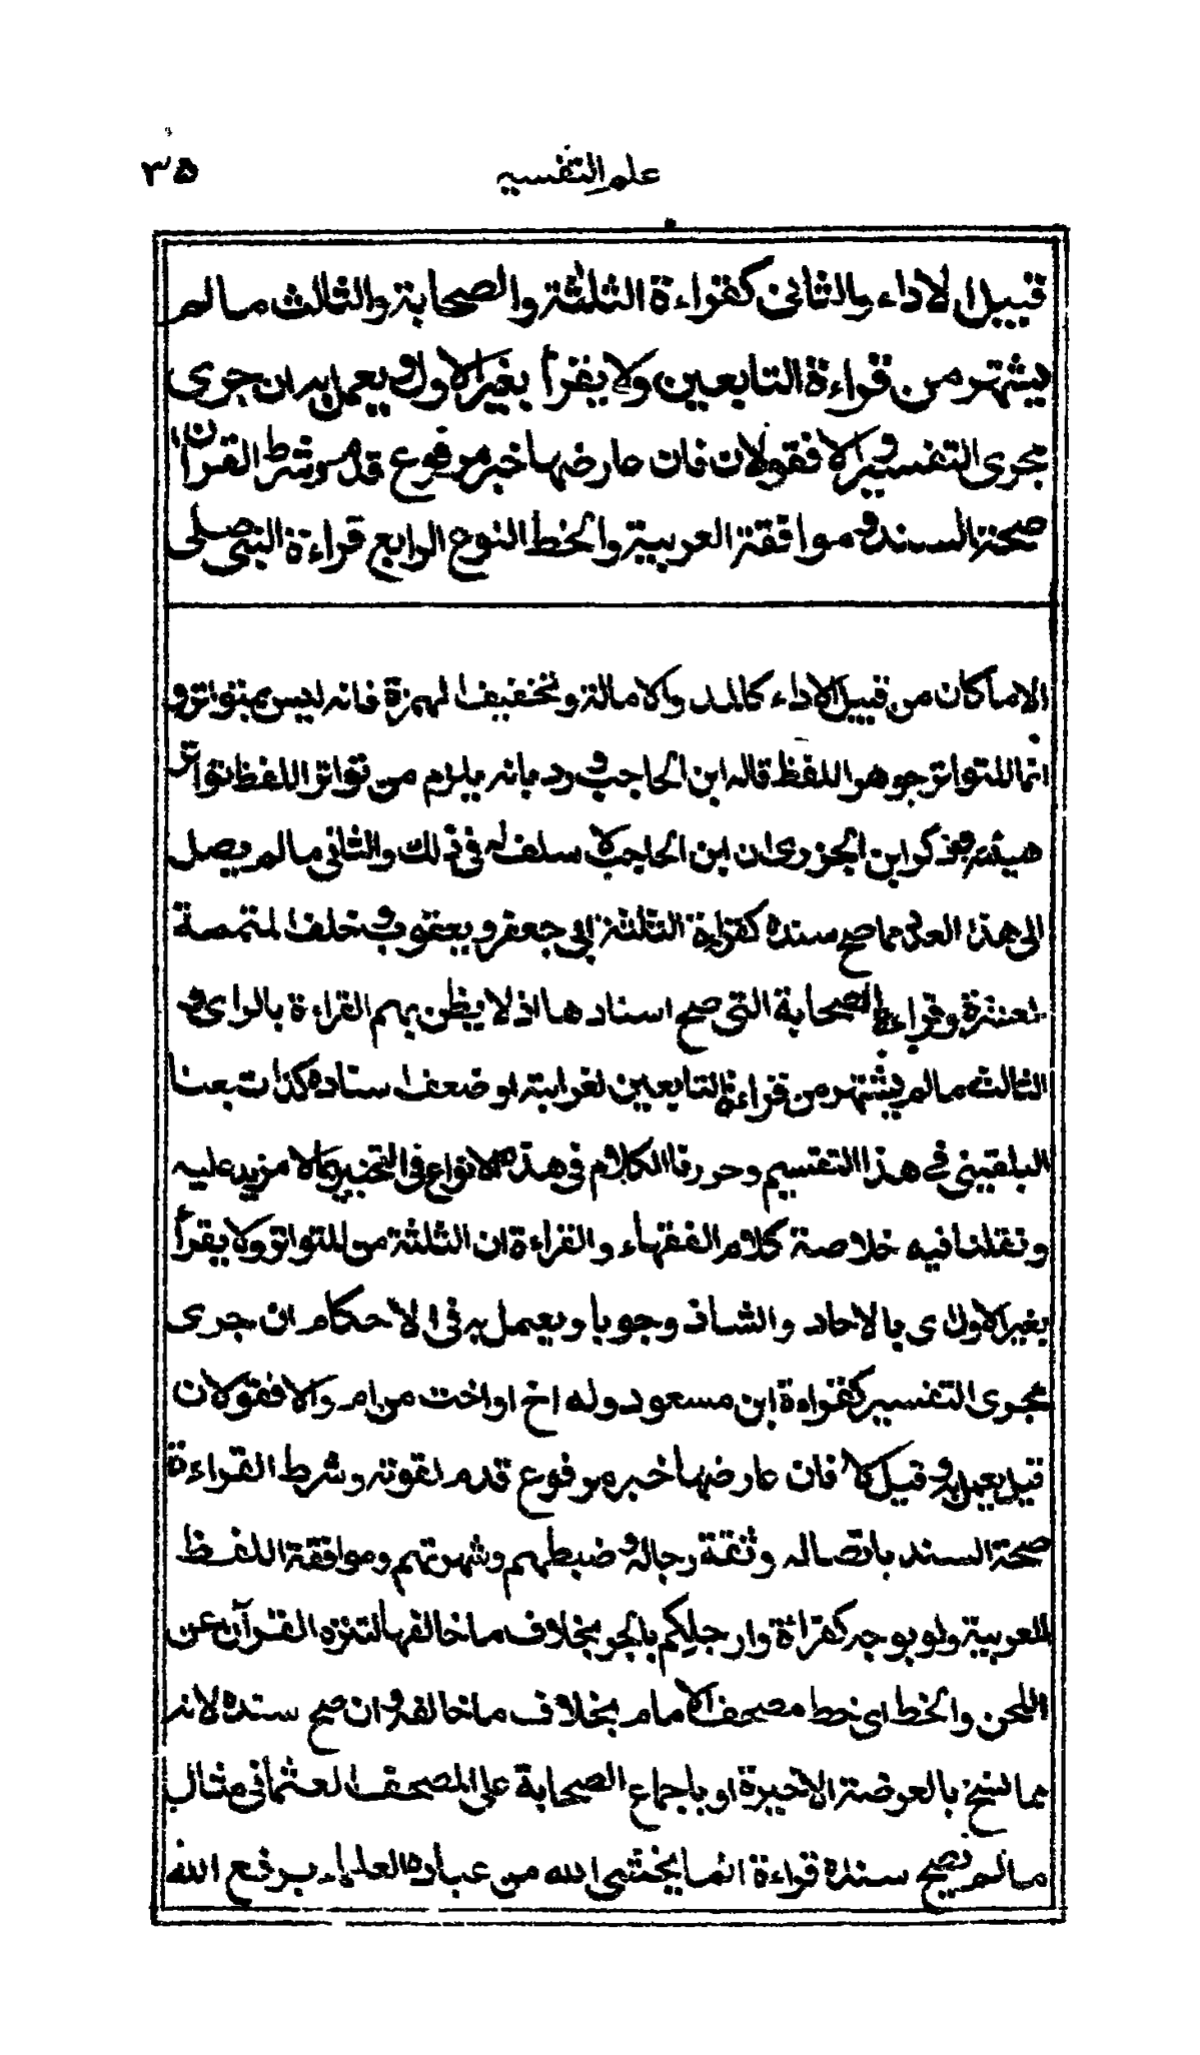 علم التفسير ٣٥
قبيل الاداء والثانى كقراءة الثلثة والصحابة والثالث ما لم
يشتهر من قراءة التابعين ولا يقرأ بغير الاول ويعمل به ان جرى
مجرى التفسير والا فقولان فان عارضها خبر مرفوع قدم وشرط القرآن
صحة السند وموافقة العربية والخط النوع الرابع قراءة النبي صلى
الا ما كان من قبيل الاداء كالمد والامالة وتخفيف الهمزة فانه ليس بمتواتر و
انما المتواتر جوهر اللفظ قاله ابن الحاجب ورد بانه يلزم من تواتر اللفظ تواتر
هيئته وذكر ابن الجزرى ان ابن الحاجب لا سلف له فى ذلك والثانى ما لم يصل
الى هذا العدد مما صح سنده كقراءة الثلثة ابى جعفر ويعقوب وخلف المتممة
للعشرة وقراءة الصحابة التى صح اسنادها اذ لا يظن بهم القراءة بالراى و
الثالث ما لم يشتهر من قراءة التابعين لغرابته او ضعف اسناده كذا تبعنا
البلقينى فى هذا التقسيم وحررنا الكلام فى هذه الانواع فى التحبير بما لا مزيد عليه
ونقلنا فيه خلاصة كلام الفقهاء والقراءة ان الثلثة من المتواتر ولا يقرأ
بغير الاول اى بالاحاد والشاذ وجوبا ويعمل به فى الاحكام ان جرى
مجرى التفسير كقراءة ابن مسعود وله اخ او اخت من ام والا فقولان
قيل يعمل به وقيل لا فان عارضها خبر مرفوع قدم لقوته وشرط القراءة
صحة السند باتصاله وثقة رجاله وضبطهم وشهرتهم وموافقة اللفظ
للعربية ولو بوجه كقراءة وارجلكم بالجر بخلاف ما خالفها لتنزه القرآن عن
اللحن والخط اى خط مصحف الامام بخلاف ما خالفه وان صح سنده لانه
مما نسخ بالعرضة الاخيرة او باجماع الصحابة على المصحف العثمانى مثال
ما لم يصح سنده قراءة انما يخشى الله من عباده العلماء برفع الله